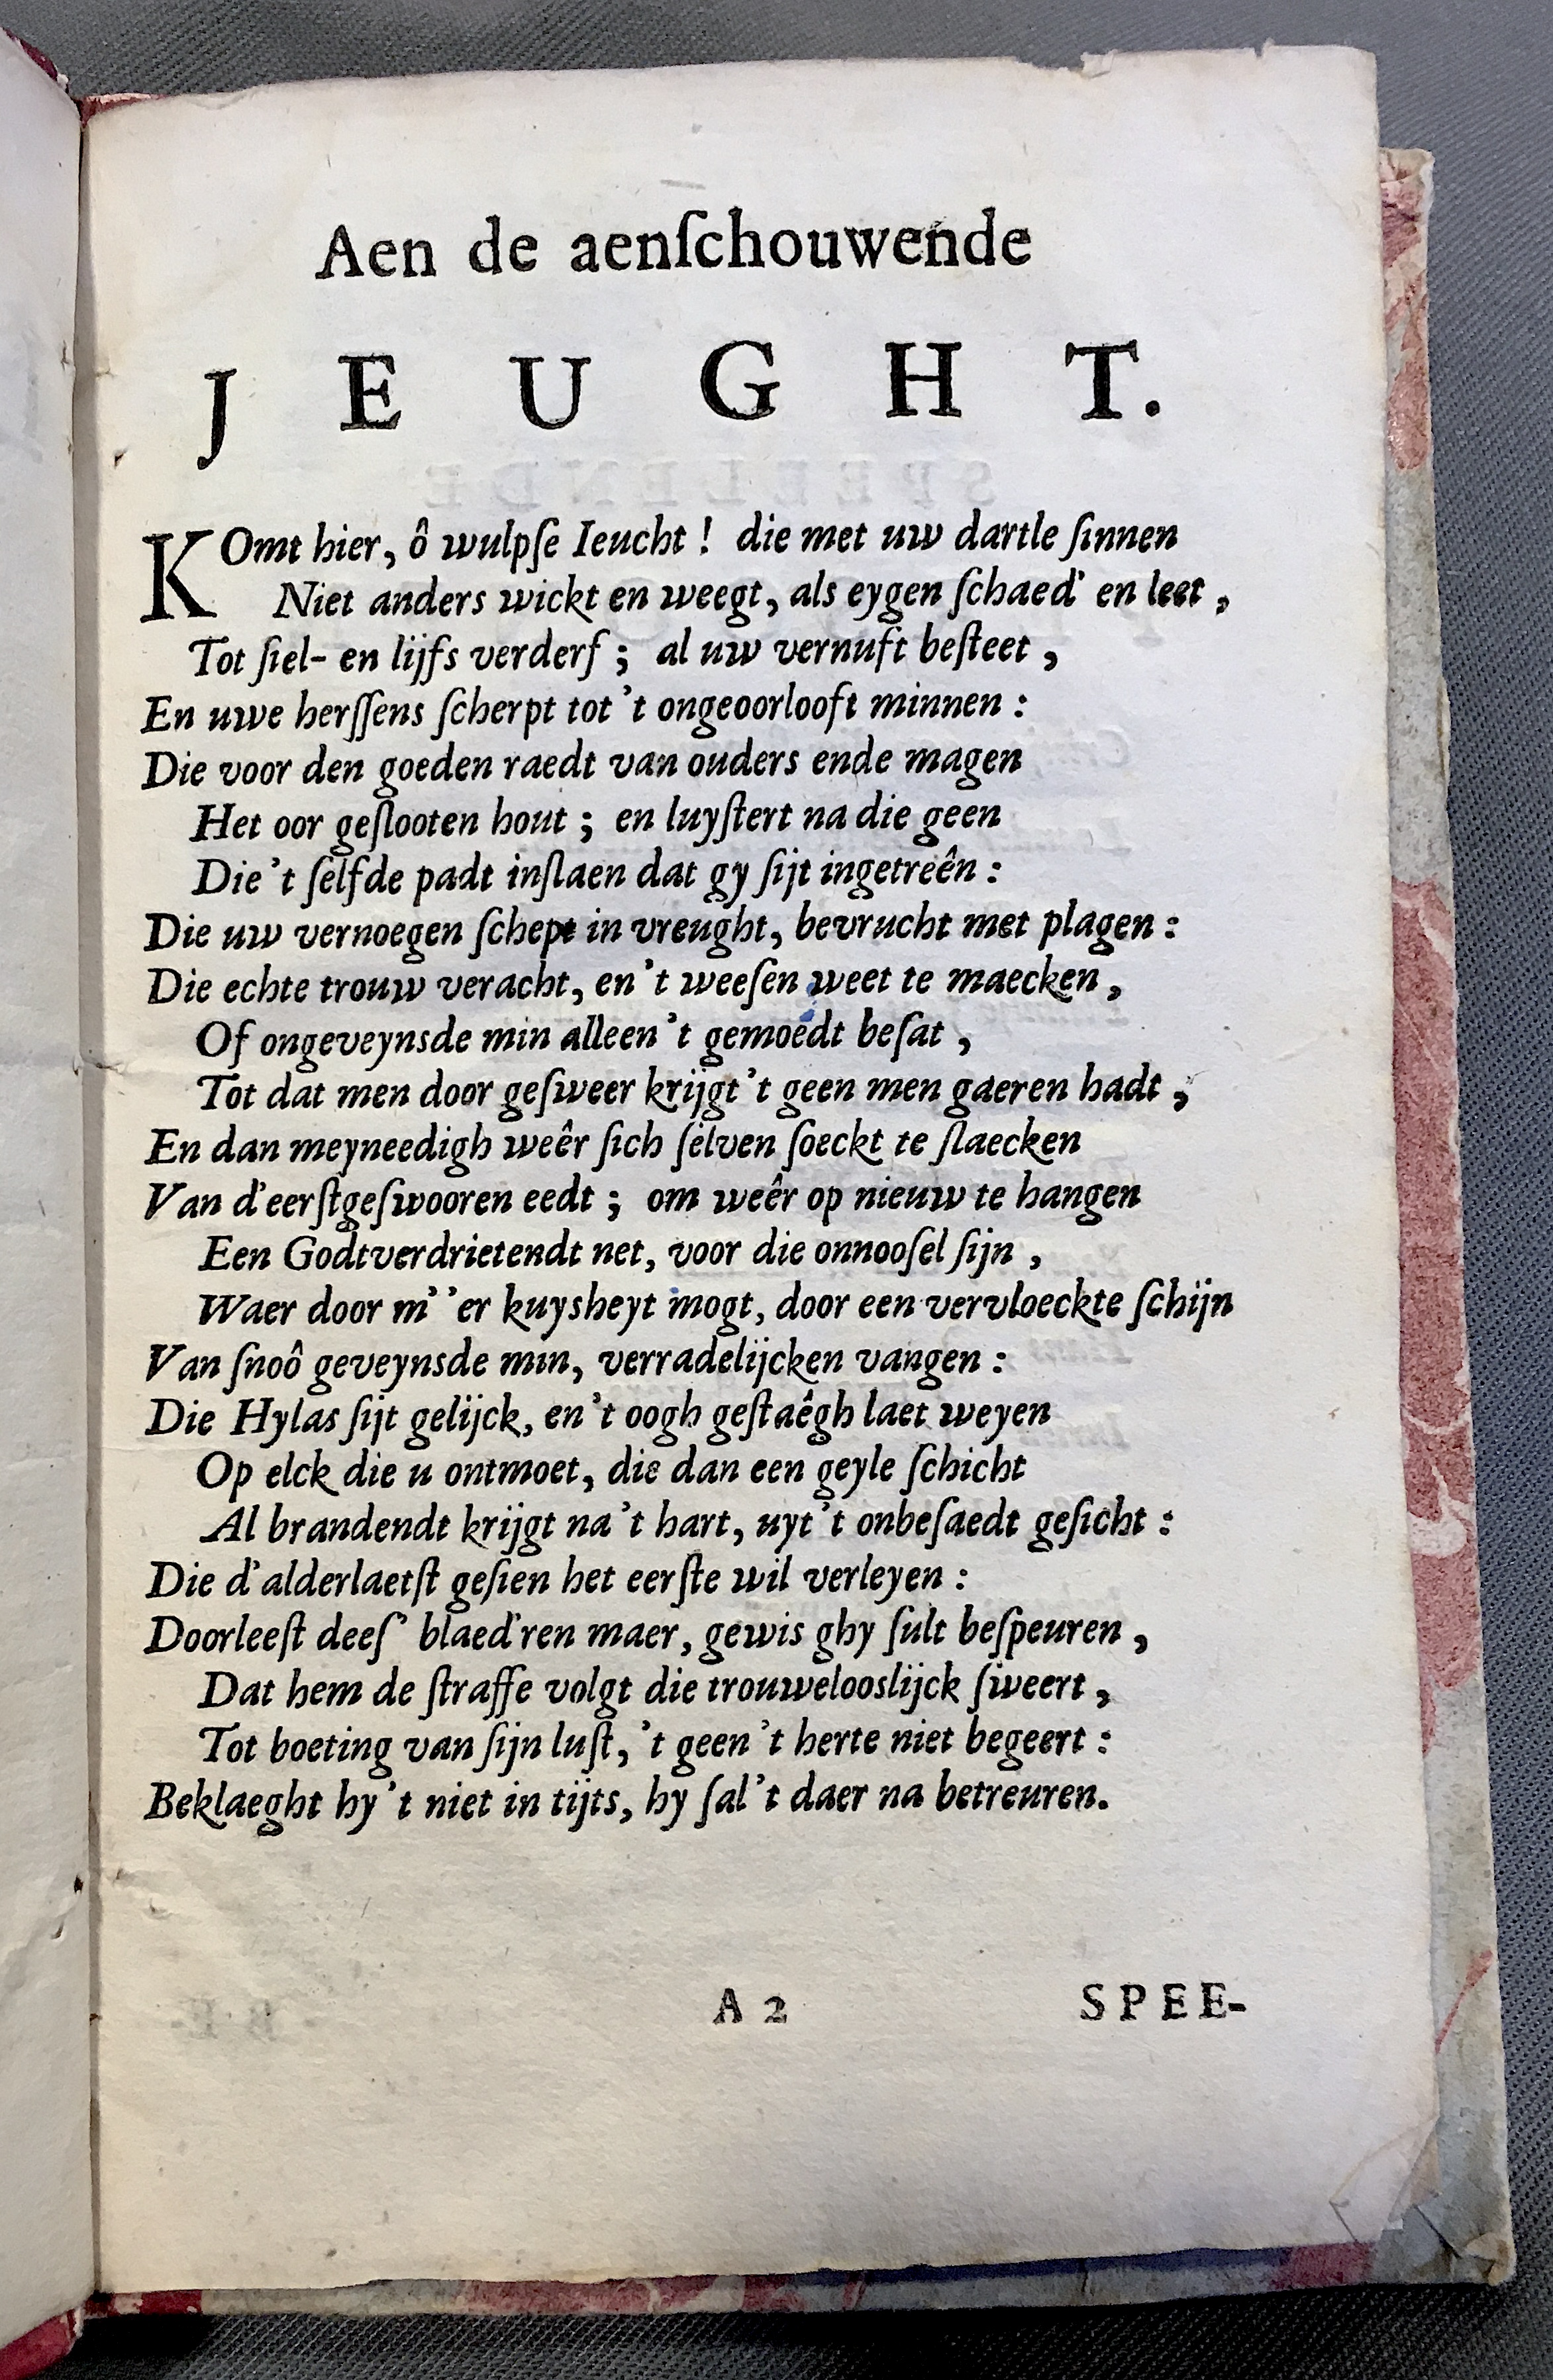 Aen de aenſchouwende
JEUGHT.
KOmt hier, ô wulpſe Ieucht! die met uw dartle ſinnen
Niet anders wickt en weegt, als eygen ſchaed' en leet,
Tot ſiel- en lijfs verderf; al uw vernuft beſteet,
En uwe herſſens ſcherpt tot 't ongeoorlooft minnen:
Die voor den goeden raedt van ouders ende magen
Het oor geſlooten hout; en luyſtert na die geen
Die 't ſelfde padt inſlaen dat gy ſijt ingetreên:
Die uw vernoegen ſchept in vreught, bevrucht met plagen:
Die echte trouw veracht, en 't weeſen weet te maecken,
Of ongeveynsde min alleen 't gemoedt beſat,
Tot dat men door geſweer krijgt 't geen men gaeren hadt,
En dan meyneedigh weêr ſich ſelven ſoeckt te ſlaecken
Van d'eerſtgeſwooren eedt; om weêr op nieuw te hangen
Een Godtverdrietendt net, voor die onnooſel ſijn,
Waer door m' 'er kuysheyt mogt, door een vervloeckte ſchijn
Van ſnoô geveynsde min, verradelijcken vangen:
Die Hylas ſijt gelijck, en 't oogh geſtaêgh laet weyen
Op elck die u ontmoet, die dan een geyle ſchicht
Al brandendt krijgt na 't hart, uyt 't onbeſaedt geſicht:
Die d'alderlaetſt geſien het eerſte wil verleyen:
Doorleeſt deeſ' blaed'ren maer, gewis ghy ſult beſpeuren,
Dat hem de ſtraffe volgt die trouwelooslijck ſweert,
Tot boeting van ſijn luſt, 't geen 't herte niet begeert:
Beklaeght hy 't niet in tijts, hy ſal 't daer na betreuren.
A 2
SPEE-